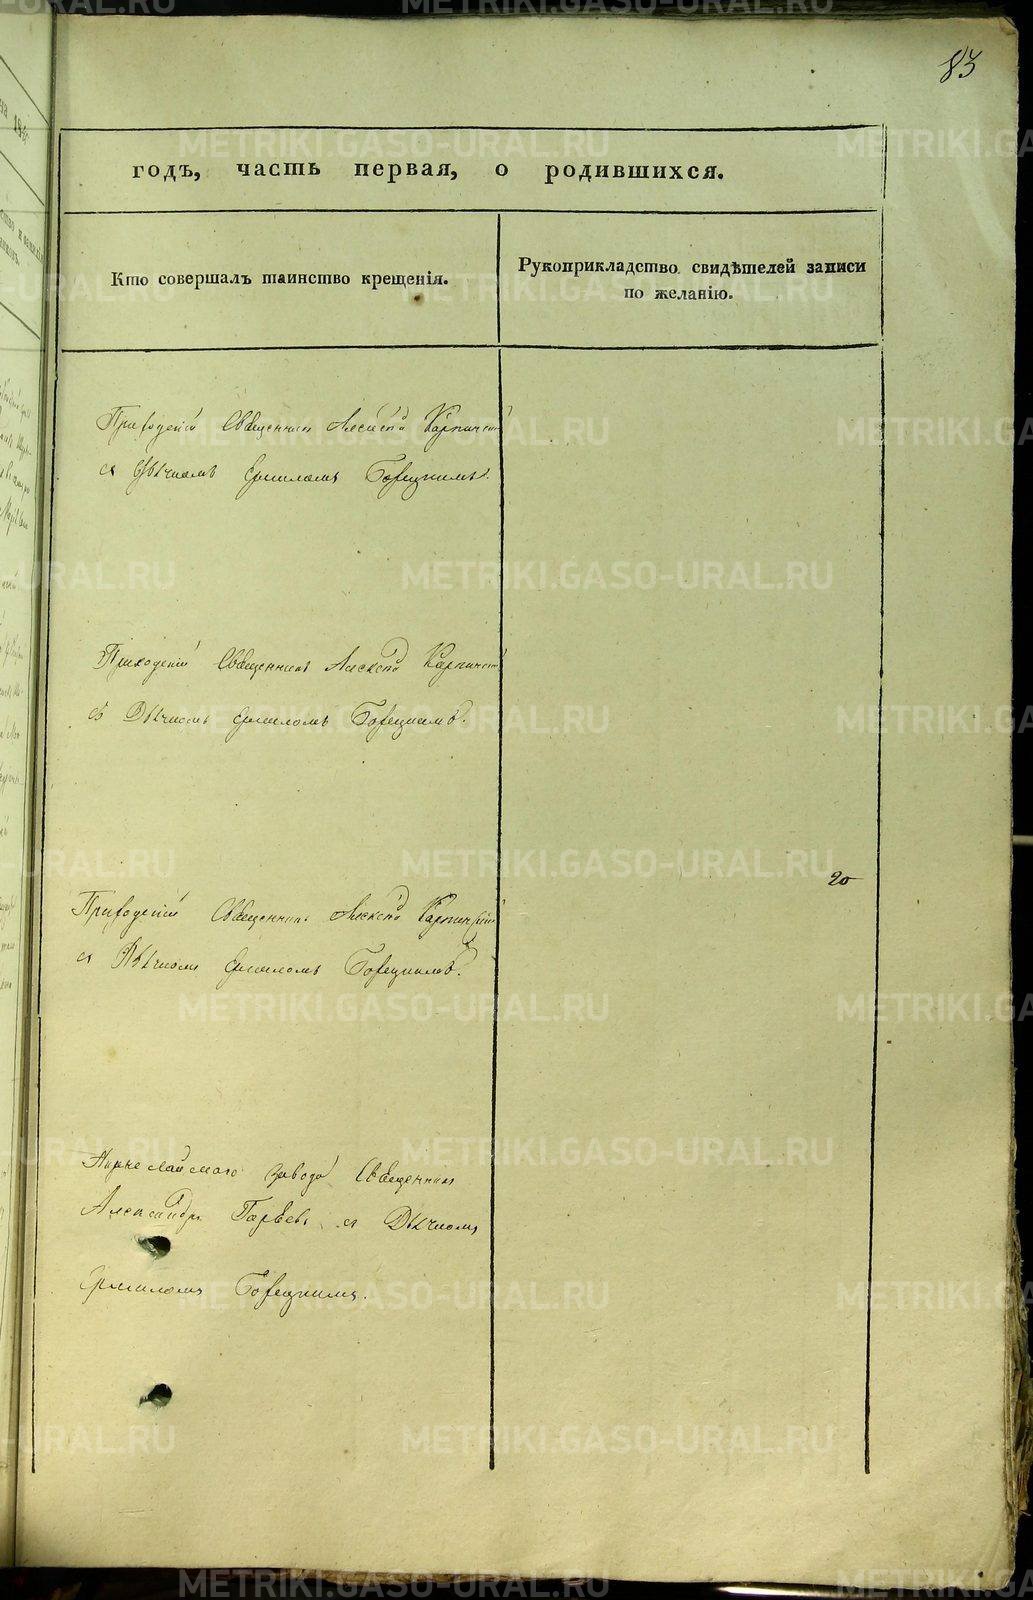 83
годъ, часть первая, о родившихся.
Кто совершалъ таинство крещенія.
Рукоприкладство свидѣтелей записи
по желанію.
Приходскій Священникъ Алексѣй Карпинскій
съ Дьячкомъ Ермиломъ Борецкимъ.
Приходскій Священникъ Алексѣй Карпинскій
съ Дьячкомъ Ермиломъ Борецкимъ.
20
Приходскій Священникъ Алексѣй Карпинскій
съ Дьячкомъ Ермиломъ Борецкимъ.
завода Священникъ
Александръ съ Дьячкомъ
Ермиломъ Борецкимъ.
METRIKI.GASO-URAL.RU